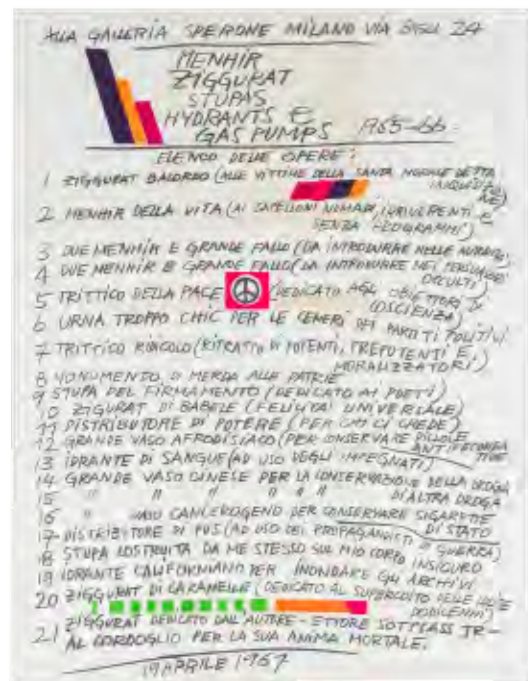 ALLA GALLERIA SPERONE MILANO VIA BIGLI 24
MENHIR
ZIGGURAT
STUPAS
HYDRANTS E
GAS PUMPS 1965-66
ELENCO DELLE OPERE:
1 ZIGGURAT BALORDO (ALLE VITTIME DELLA SANTA NORMALE DETTA
2 MENHIR DELLA VITA (AI CAPELLONI NOMADI, IRRIVERENTI E
SENZA PROGRAMMI)
3 DUE MENHIR E GRANDE FALLO (DA INTRODURRE NELLE
4 DUE MENHIR E GRANDE FALLO (DA INTRODURRE NEI PERSUASORI
OCCULTI)
5 TRITTICO DELLA PACE (DEDICATO AGLI OBIETTORI DI
COSCIENZA)
6 URNA TROPPO CHIC PER LE CENERI DEI PARTITI POLITICI
7 TRITTICO RIDICOLO (RITRATTO DI POTENTI, PREPOTENTI E
MORALIZZATORI)
8 MONUMENTO DI MERDA ALLE PATRIE
9 STUPA DEL FIRMAMENTO (DEDICATO AI POETI)
10 ZIGURAT DI BABELE (FELICITA' UNIVERSALE)
11 DISTRIBUTORE DI POTERE (PER CHI CI CREDE)
12 GRANDE VASO AFRODISIACO (PER CONSERVARE PILLOLE
ANTIFECONDA
TIVE
13 IDRANTE DI SANGUE (AD USO DEGLI IMPEGNATI)
14 GRANDE VASO CINESE PER LA CONSERVAZIONE DELLA DROGA
15 " " " " " DI ALTRA DROGA
16 " VASO CANCEROGENO PER CONSERVARE SIGARETTE
DI STATO
17 DISTRIBUTORE DI PUS (AD USO DEI PROPAGANDISTI DI GUERRA)
18 STUPA COSTRUITA DA ME STESSO SUL MIO CORPO INSICURO
19 IDRANTE CALIFORNIANO PER INONDARE GLI ARCHIVI
20 ZIGGURAT DI CARAMELLE (DEDICATO AL SUPERCULTO DELLE
21 ZIGGURAT DEDICATO DALL'AUTORE - ETTORE SOTTSASS JR -
AL CORDOGLIO PER LA SUA ANIMA MORTALE.
19 APRILE 1967